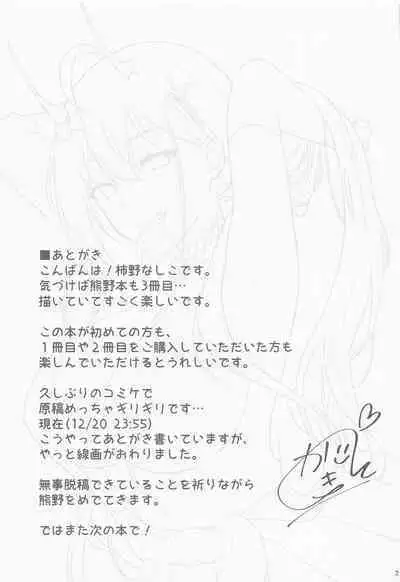 ■あとがき
こんばんは！柿野なしこです。
気づけば熊野本も３冊目…
描いていてすごく楽しいです。
この本が初めての方も、
１冊目や２冊目をご購入していただいた方も
楽しんでいただけるとうれしいです。
久しぶりのコミケで
原稿めっちゃギリギリです…
現在(12/20 23:55)
こうやってあとがき書いていますが、
やっと線画がおわりました。
無事脱稿できていることを祈りながら
熊野をめでてきます。
ではまた次の本で！